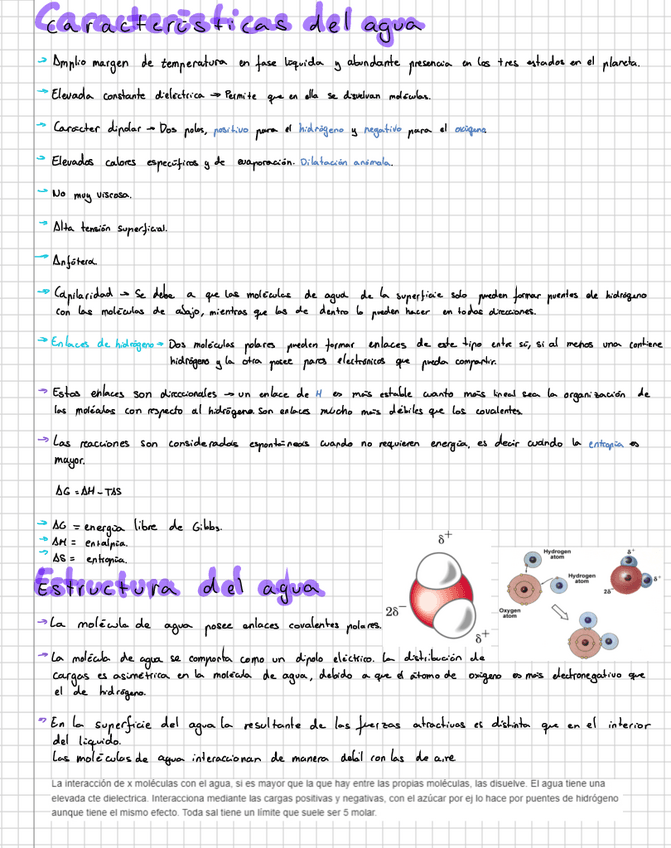 Características del agua
→ Amplio margen de temperatura en fase líquida y abundante presencia en los tres estados en el planeta.
→ Elevada constante dieléctrica → Permite que en ella se disuelvan moléculas.
→ Caracter dipolar → Dos polos, positivo para el hidrógeno y negativo para el oxígeno
→ Elevados calores específicos y de evaporación. Dilatación anómala.
→ No muy viscosa.
→ Alta tensión superficial.
→ Anfótera.
→ Capilaridad → Se debe a que las moléculas de agua de la superficie solo pueden formar puentes de hidrógeno
con las moléculas de abajo, mientras que las de dentro lo pueden hacer en todas direcciones.
→ Enlaces de hidrógeno → Dos moléculas polares pueden formar enlaces de este tipo entre sí, si al menos una contiene
hidrógeno y la otra posee pares electrónicos que pueda compartir.
→ Estos enlaces son direccionales → un enlace de H es más estable cuanto más lineal sea la organización de
las moléculas con respecto al hidrógeno. Son enlaces mucho más débiles que los covalentes.
→ Las reacciones son consideradas espontáneas cuando no requieren energía, es decir cuándo la entropía es
mayor.
ΔG = ΔH - TΔS
→ ΔG = energía libre de Gibbs.
→ ΔH = entalpía.
→ ΔS = entropía.
Estructura del agua
→ La molécula de agua posee enlaces covalentes polares.
δ+
2δ−
δ+
Hydrogen
atom
Hydrogen
atom
Oxygen
atom
δ+
δ+
2δ−
→ La molécula de agua se comporta como un dipolo eléctrico. La distribución de
cargas es asimétrica en la molécula de agua, debido a que el átomo de oxígeno es más electronegativo que
el de hidrógeno.
→ En la superficie del agua la resultante de las fuerzas atractivas es distinta que en el interior
del líquido.
Las moléculas de agua interaccionan de manera débil con las de aire
La interacción de x moléculas con el agua, si es mayor que la que hay entre las propias moléculas, las disuelve. El agua tiene una
elevada cte dielectrica. Interacciona mediante las cargas positivas y negativas, con el azúcar por ej lo hace por puentes de hidrógeno
aunque tiene el mismo efecto. Toda sal tiene un límite que suele ser 5 molar.